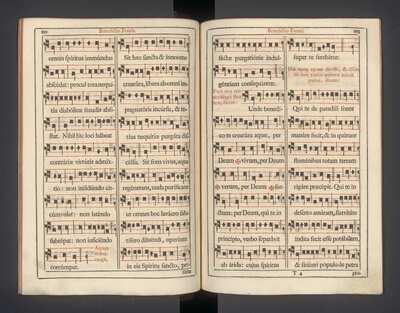 Benedictio Fontis.
omnis spiritus immundus
abscedat: procul tota nequi-
tia diabólicæ fraudis absi-
stat. Nihil hic loci hábeat
contráriæ virtútis admix-
tio: non insidiándo cir-
cúmvolet: non laténdo
subrépat: non inficiéndo
corrúmpat.
Sit hæc sancta & ínnocens
creatúra, líbera ab omni im-
pugnatóris incúrsu, & to-
tíus nequítiæ purgáta dis-
céssu. Sit fons vivus, aqua
regénerans, unda puríficans:
ut omnes hoc lavácro salu-
tífero diluéndi, operánte
in eis Spíritu sancto, per-
Benedictio Fontis.
fectæ purgatiónis indul-
géntiam consequántur.
Unde benedí-
co te creatúra aquæ, per
Deum vivum, per Deum
verum, per Deum san-
ctum: per Deum, qui te in
princípio, verbo separávit
ab árida: cujus spíritus
super te ferebátur.
Qui te de paradísi fonte
manáre fecit, & in quátuor
flumínibus totam terram
rigáre præcépit. Qui te in
desérto amáram, suavitáte
índita fecit esse potábilem,
& sitiénti pópulo de petra
T 4